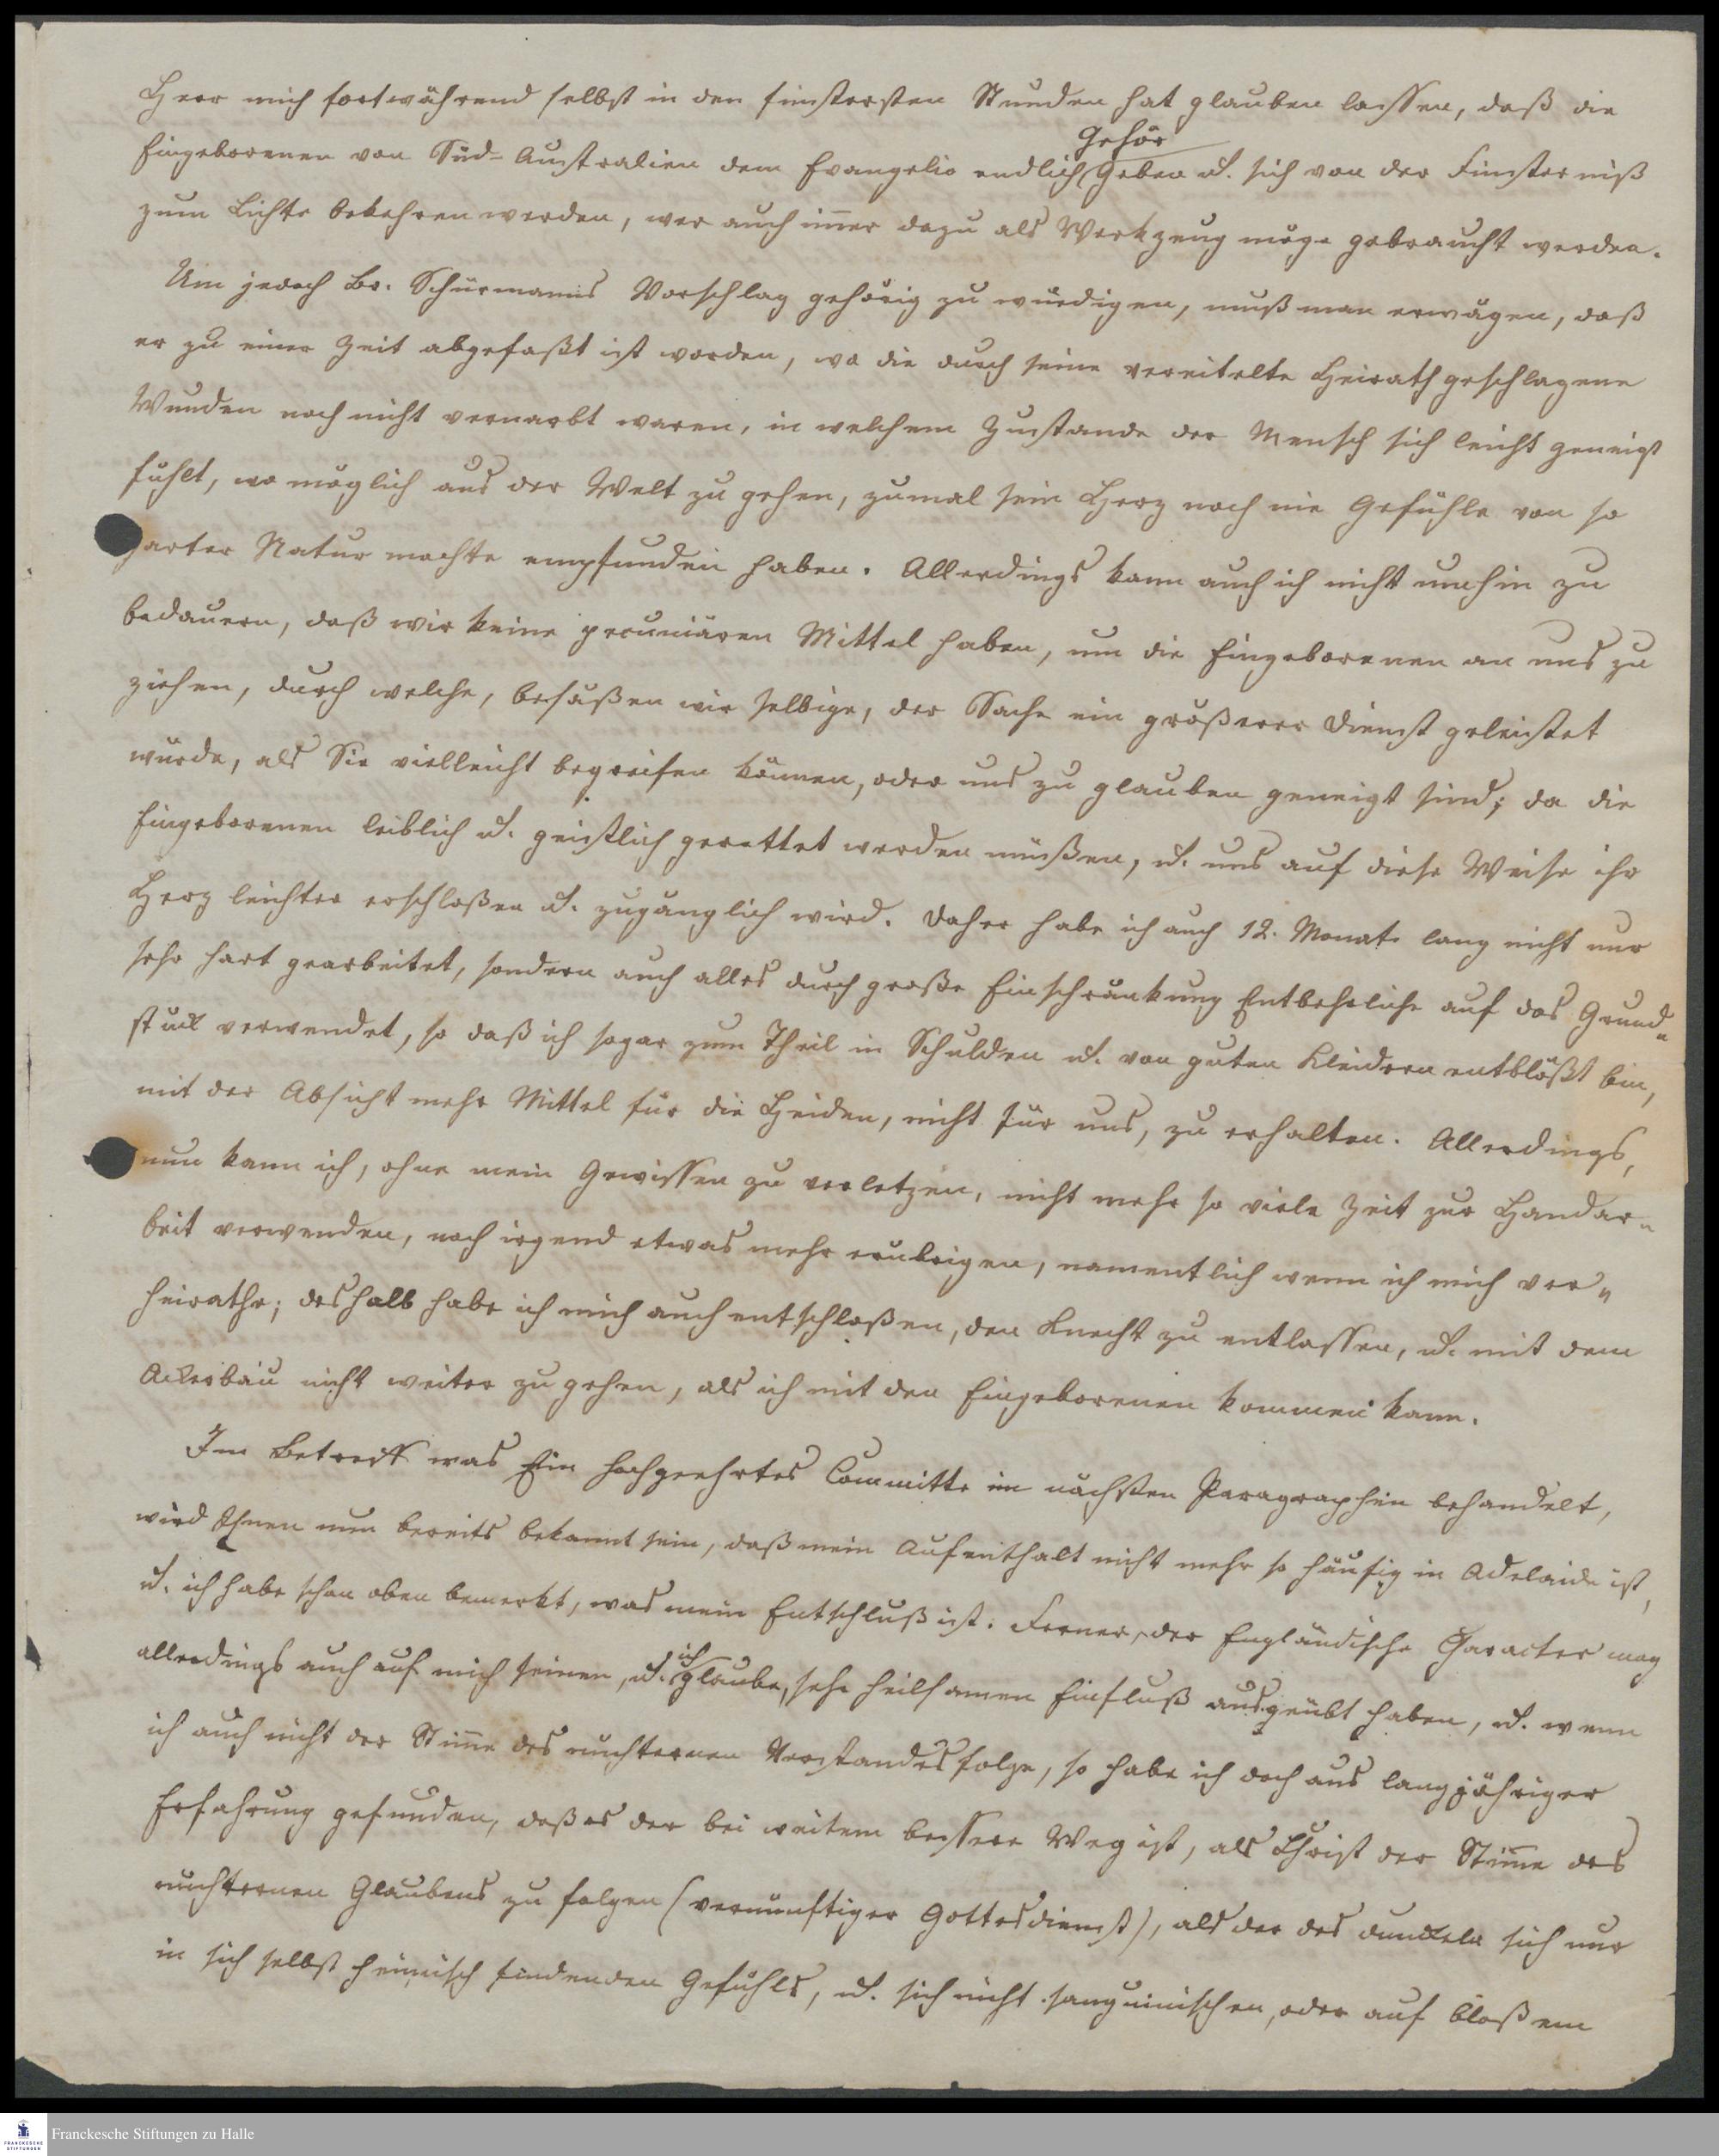 Herr mich fortwährend selbst in den finstersten Stunden hat glauben lassen, daß die
Eingeborenen von Süd-Australien dem Evangelio endlich Gehör geben u. sich von der Finsterniß
zum Lichte bekehren werden, wer auch im̅er dazu als Werkzeug möge gebraucht werden.
Um jedoch Br. Schürmanns Vorschlag gehörig zu würdigen, muß man erwägen, daß
er zu einer Zeit abgefaßt ist worden, wo die durch seine vereitelte Heirath geschlagene
Wunden noch nicht vernarbt waren, in welchem Zustande der Mensch sich leicht geneigt
fühlt, wo möglich aus der Welt zu gehen, zumal sein Herz noch nie Gefühle von so
zarter Natur mochte empfunden haben. Allerdings kann auch ich nicht umhin zu
bedauern, daß wir keine pecuniären Mittel haben, um die Eingeborenen an uns zu
ziehen, durch welche, besäßen wir selbige, der Sache ein größerer Dienst geleistet
würde, als Sie vielleicht begreifen können, oder uns zu glauben geneigt sind; da die
Eingeborenen leiblich u. geistlich gerettet werden müßen, u. uns auf diese Weise ihr
Herz leichter erschloßen u. zugänglich wird. Daher habe ich auch 12. Monate lang nicht nur
sehr hart gearbeitet, sondern auch alles durch große Einschränkung Entbehrliche auf das Grund-
stück verwendet, so daß ich sogar zum Theil in Schulden u. von guten Kleidern entblößt bin,
mit der Absicht mehr Mittel für die Heiden, nicht für uns, zu erhalten. Allerdings,
nun kann ich, ohne mein Gewissen zu verletzen, nicht mehr so viele Zeit zur Handar-
beit verwenden, noch irgend etwas mehr erübrigen, namentlich wenn ich mich ver-
heirathe; deshalb habe ich mich auch entschloßen, den Knecht zu entlassen, u. mit dem
Ackerbau nicht weiter zu gehen, als ich mit den Eingeborenen kommen kann.
Im Betreff was Ein hochgeehrtes Committe im nächsten Paragraphen behandelt,
wird Ihnen nun bereits bekannt sein, daß mein Aufenthalt nicht mehr so häufig in Adelaide ist,
u. ich habe schon oben bemerkt, was mein Entschluß ist. Ferner, der Engländische Character mag
allerdings auch auf mich seinen, u. ich glaube, sehr heilsamen Einfluß ausgeübt haben, u. wenn
ich auch nicht der Stim̅e des nüchternen Verstandes folge, so habe ich doch aus langjähriger
Erfahrung gefunden, daß es der bei weitem bessere Weg ist, als Christ der Stim̅e des
nüchternen Glaubens zu folgen (vernünftiger Gottesdienst), als der des dunckeln sich nur
in sich selbst heimisch findenden Gefühls, u. sich nicht sanguinischen, oder auf bloßem
Franckesche Stiftungen zu Halle